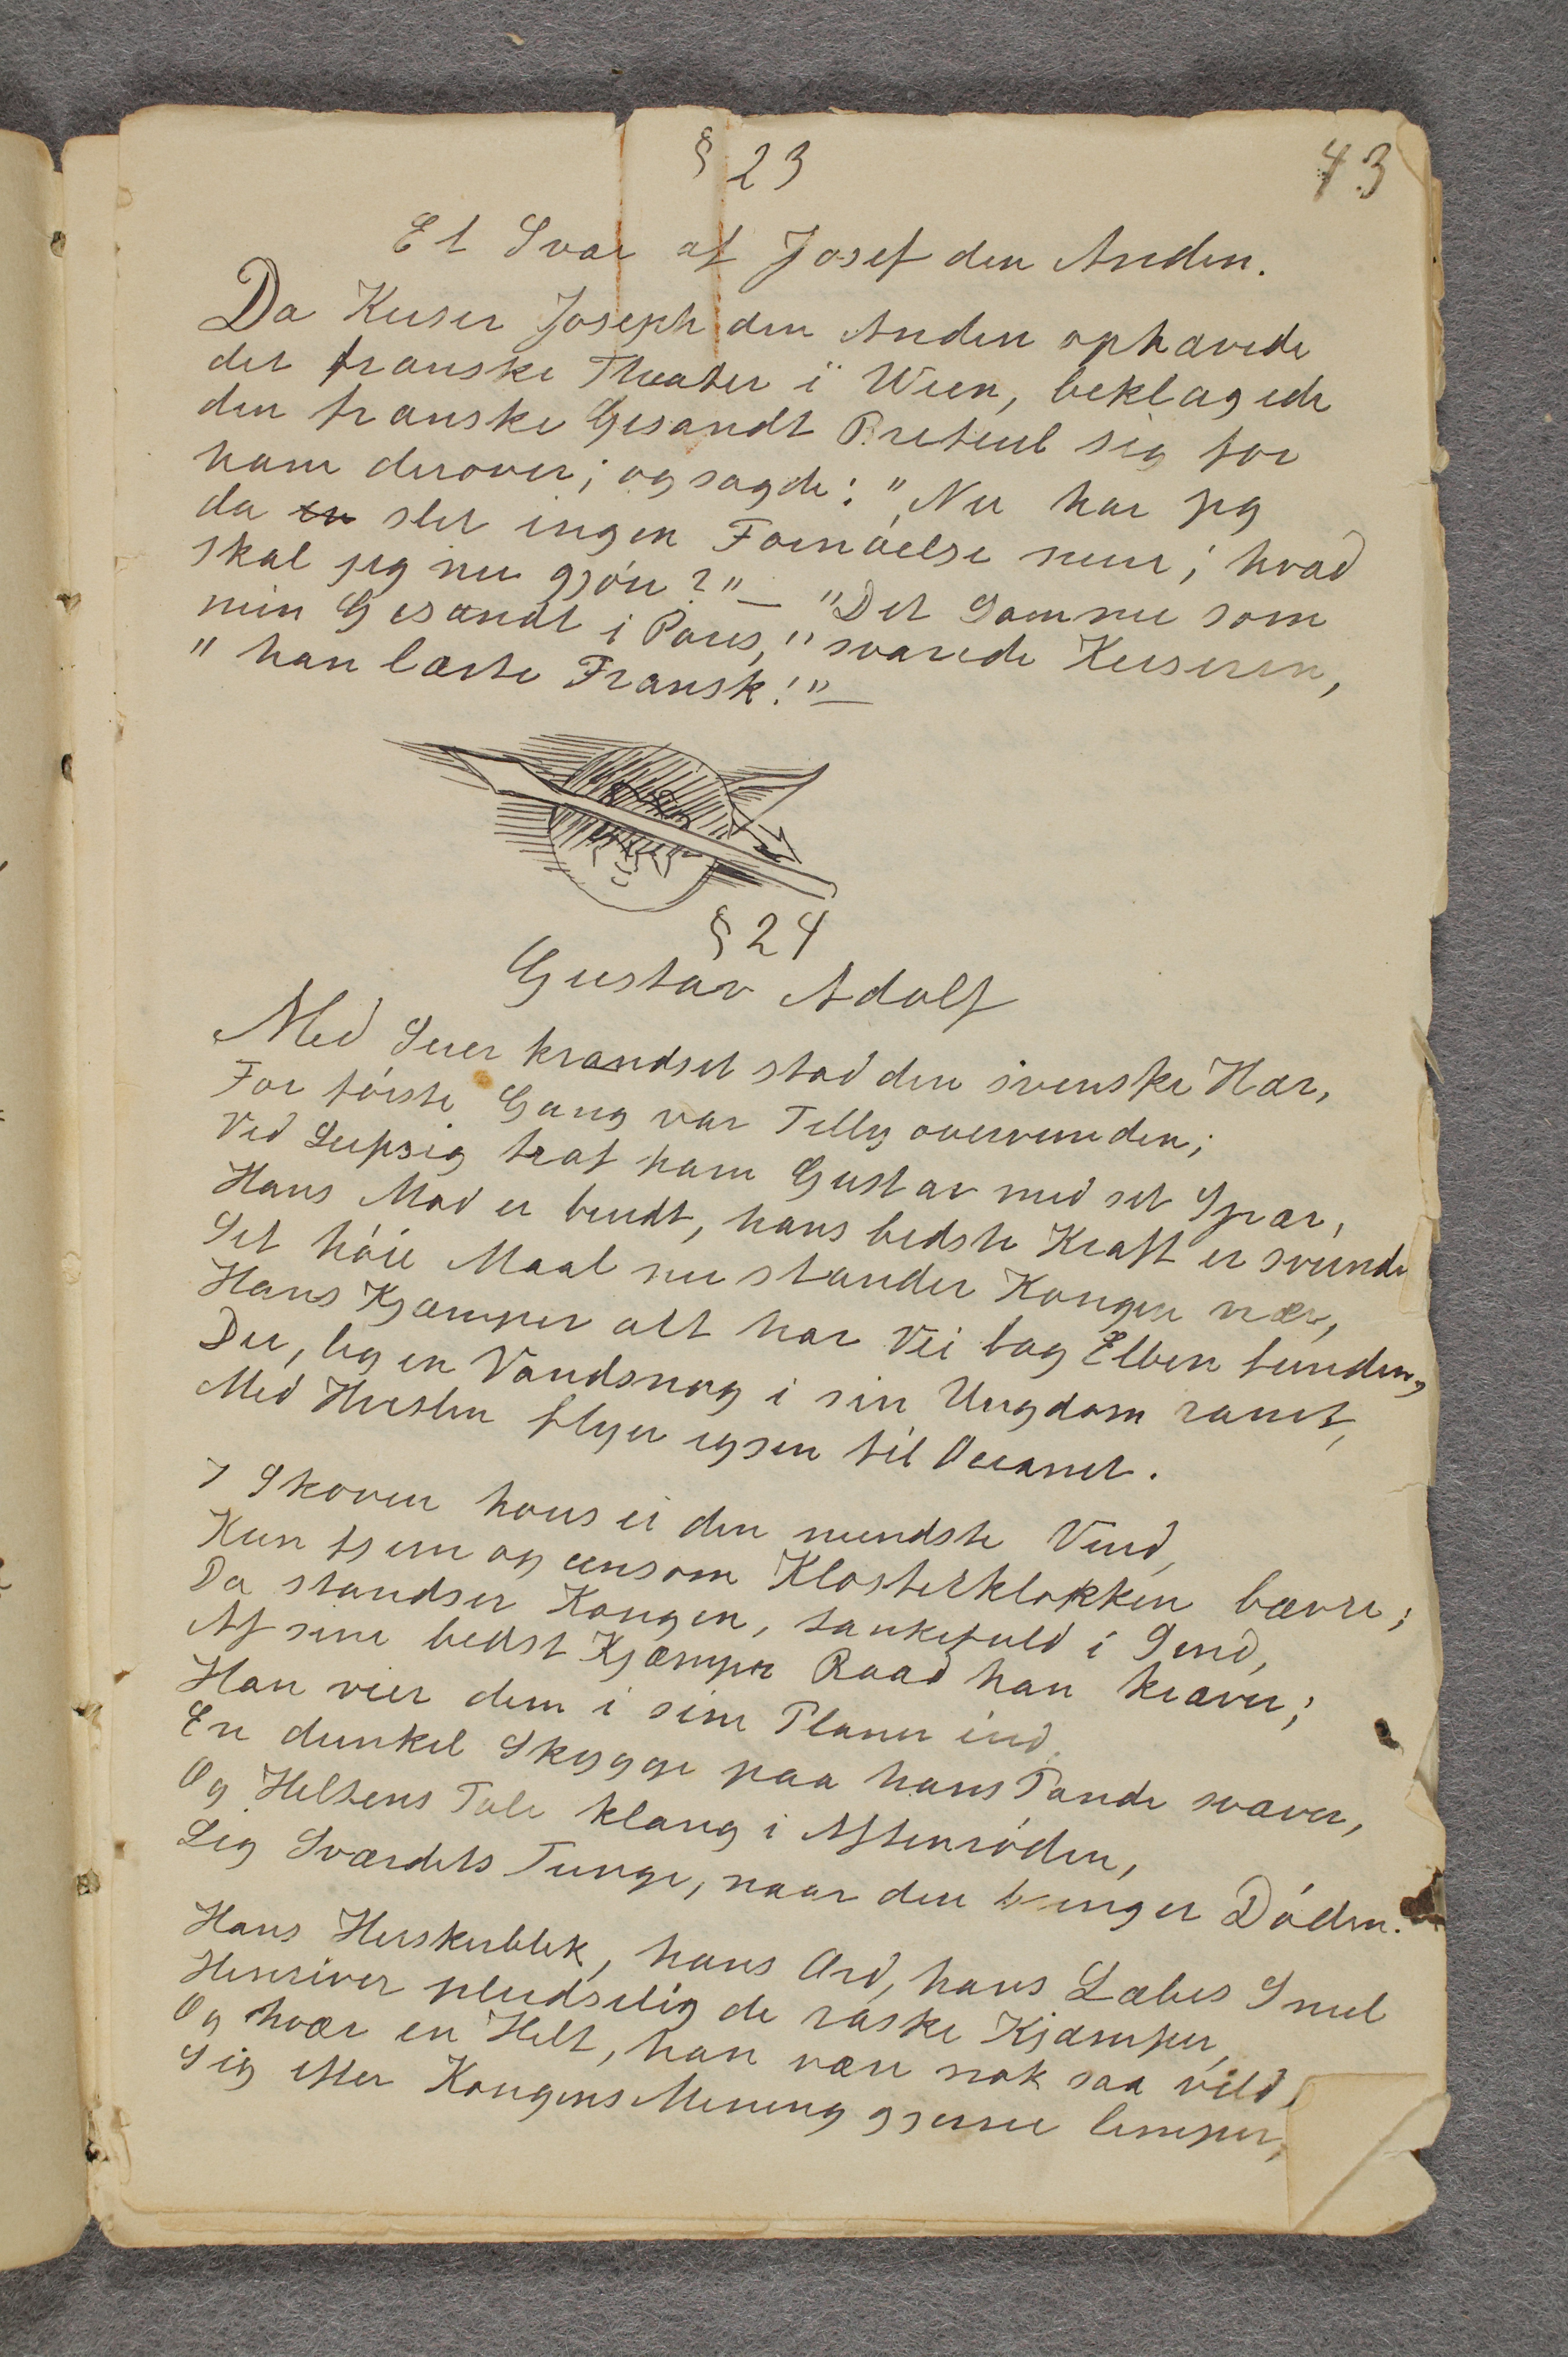 § 23
43
Et Svar af Josef den Anden.
Da Keiser Joseph den Anden ophævede
det franske Theater i Wien, beklagede
den franske Gesandt Breteuil sig for
ham derover; og sagde: "Nu har jeg
da en slet ingen Fornöielse mere; hvad
skal jeg nu gjöre?" — "Det Samme som
min Gesandt i Paris," svarede Keiseren,
"han lærte Fransk!" —
§ 24
Gustav Adolf
Med Seier krandset stod den svenske Hær,
For förste Gang var Tilly overvunden;
Ved Leipzig traf ham Gustav med sit Spær,
Hans Mod er bendt, hans bedste Kraft er svunde
Sit höie Maal nu stander Kongen nær,
Hans Kjæmper alt har Vei bag Elben funden,
Der, lig en Vandsnog i sin Ungdom ramt,
Med Hvislen flyer igjen til Oceanet.
I Skoven hores ei den mindste Vind,
Kun fjern og eensom Klosterklokken bæver;
Da standser Kongen, tankefuld i Sind,
Af sine bedst Kjæmper Raad han kræver;
Han vier dem i sine Planer ind,
En dunkel Skygge paa hans Pande svæver,
Og Heltens Tale klang i Aftenröden,
Lig Sværdets Tunge, naar den bringer Döden.
Hans Herskerblik, hans Ord, hans Læbes Smil
Henriver pludselig de raske Kjæmper,
Og hver en Helt, han være nok saa vild,
Sig efter Kongens Mening gjerne lemper,